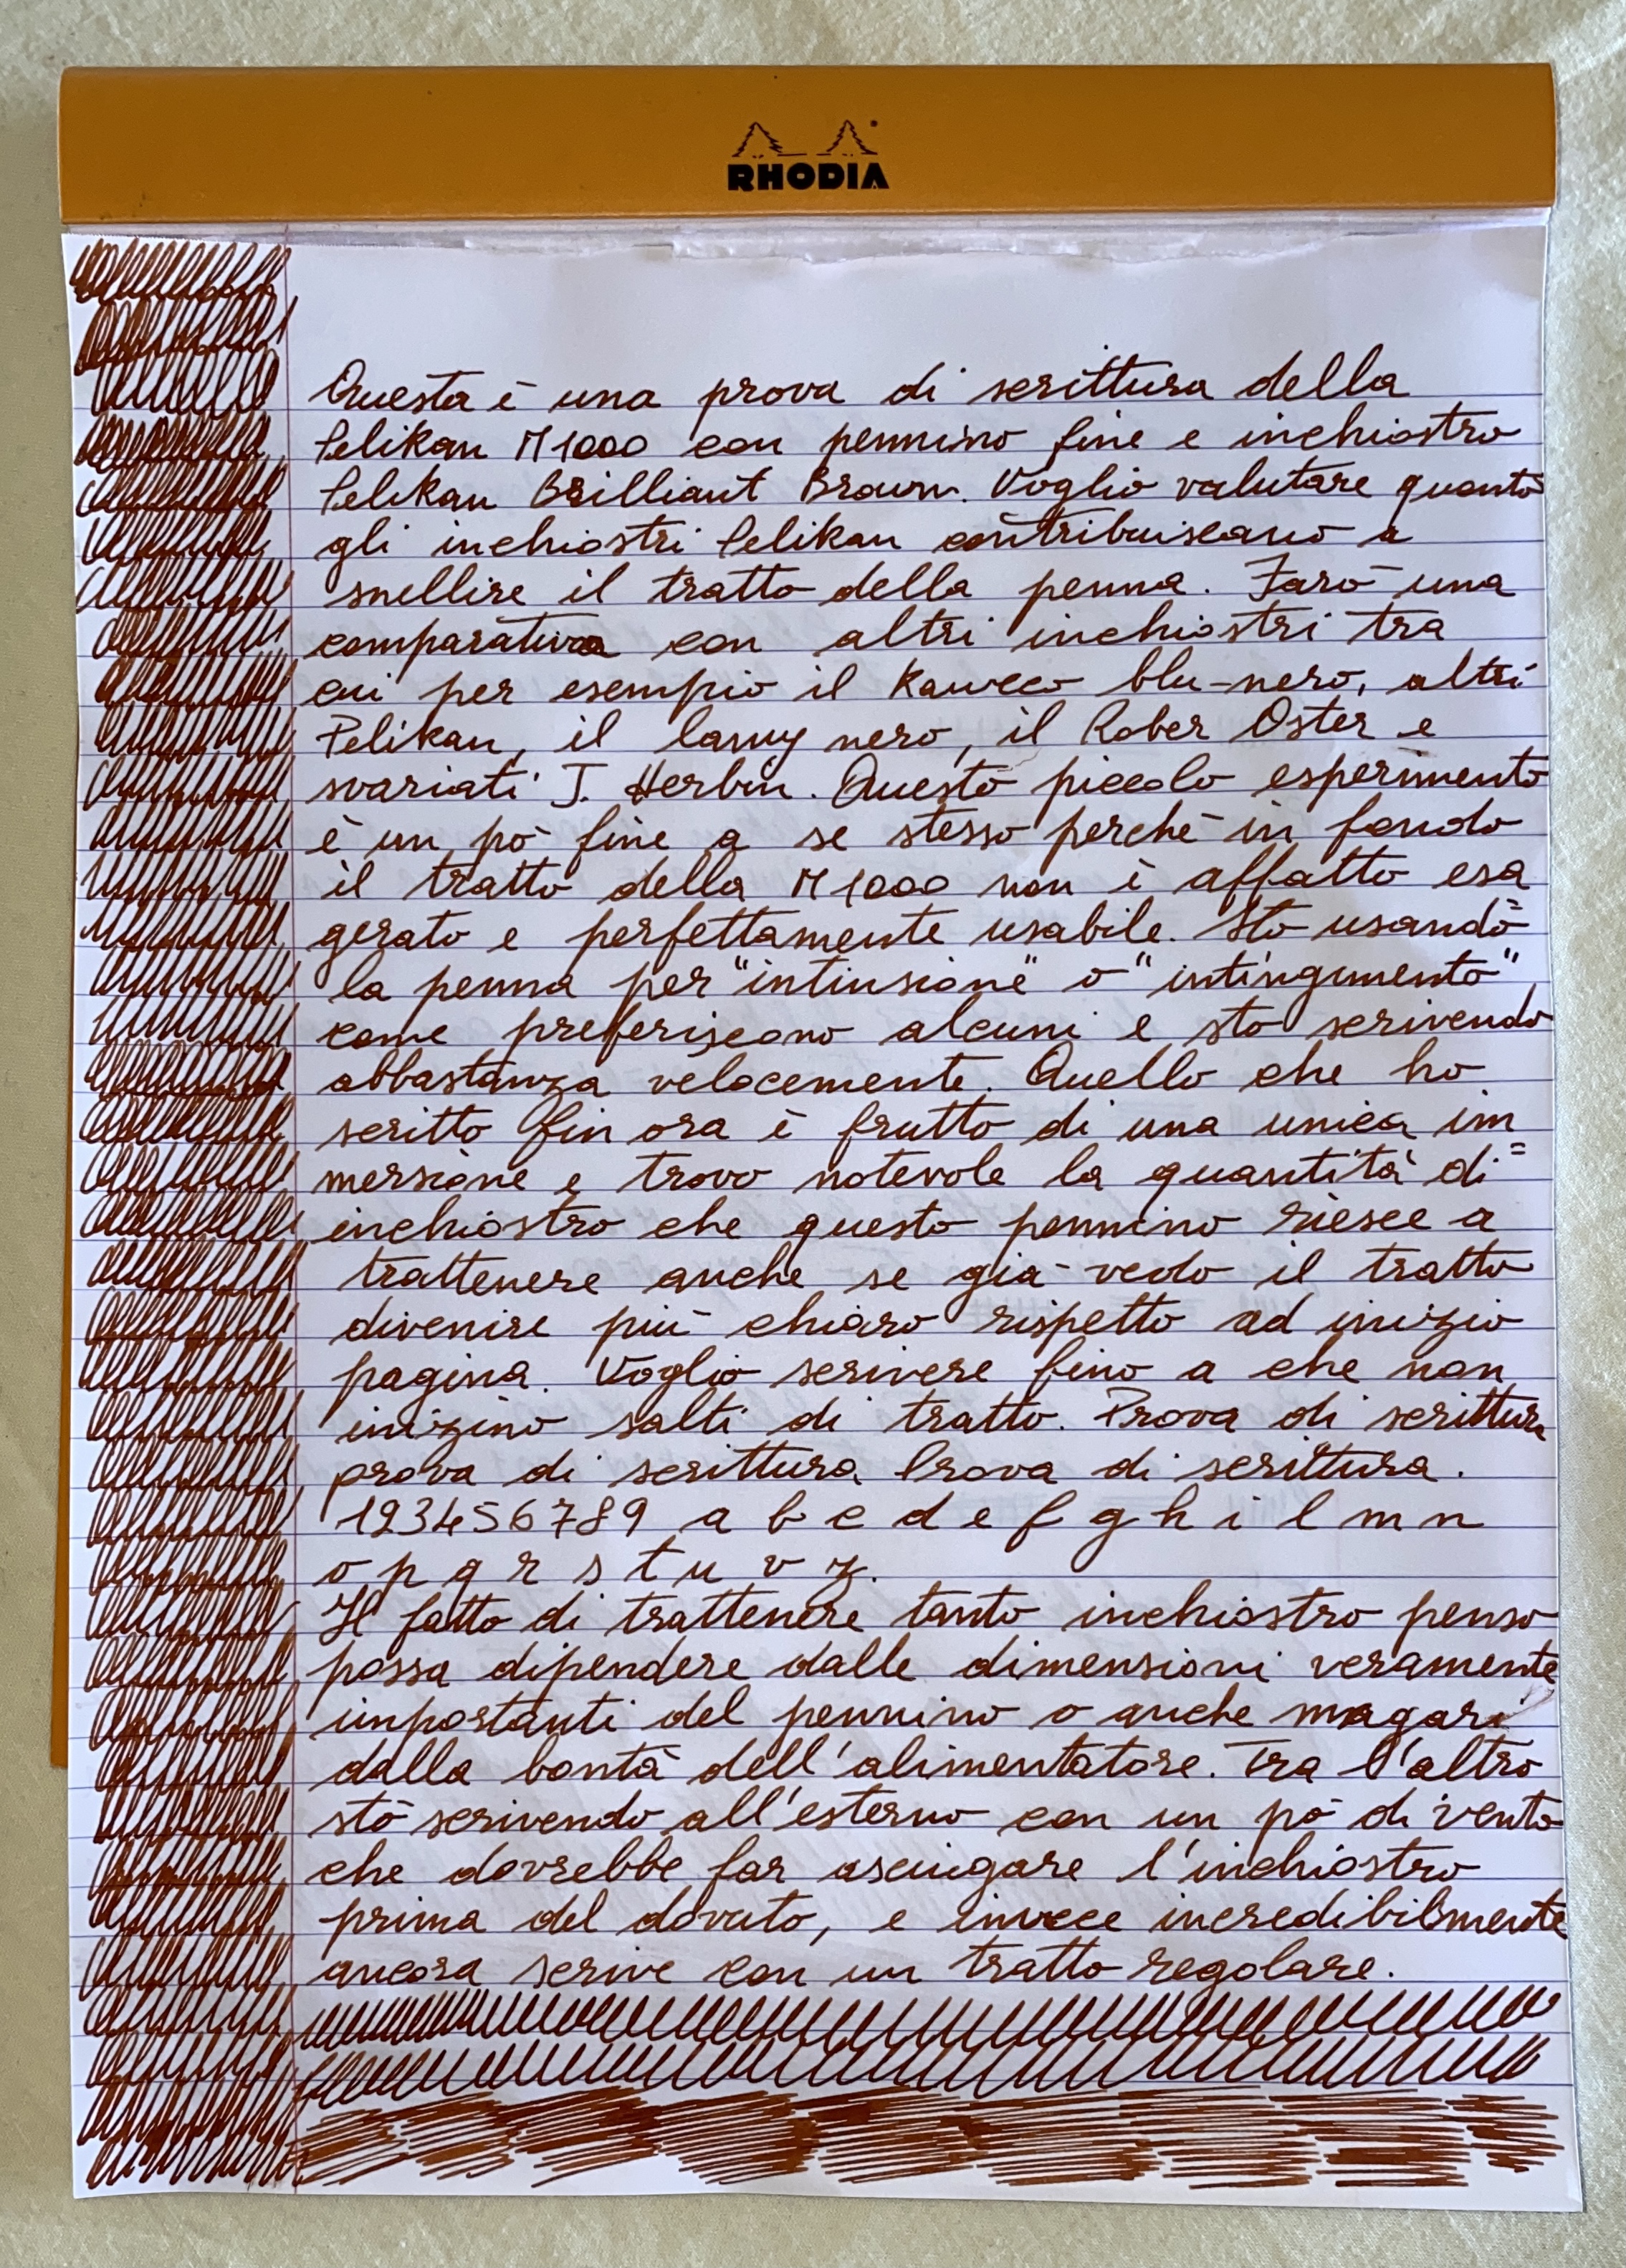 RHODIA
Questa è una prova di scrittura della
Pelikan M1000 con pennino fine e inchiostro
Pelikan Brilliant Brown. Voglio valutare quanto
gli inchiostri Pelikan contribuiscano a
snellire il tratto della penna. Farò una
comparativa con altri inchiostri tra
cui per esempio il Kaweco blu-nero, altri
Pelikan, il Lamy nero, il Rober Oster e
svariati J. Herbin. Questo piccolo esperimento
è un pò fine a se stesso perchè in fondo
il tratto della M1000 non è affatto esa
gerato e perfettamente usabile. Sto usando=
la penna per "intinsione" o "intingimento"
come preferiscono alcuni e sto scrivendo
abbastanza velocemente. Quello che ho
scritto fin ora è frutto di una unica im
mersione e trovo notevole la quantità di=
inchiostro che questo pennino riesce a
trattenere anche se già vedo il tratto
divenire più chiaro rispetto ad inizio
pagina. Voglio scrivere fino a che non
inizino salti di tratto. Prova di scrittura
prova di scrittura Prova di scrittura.
123456789 a b c d e f g h i l m n
o p q r s t u v z.
Il fatto di trattenere tanto inchiostro penso
possa dipendere dalle dimensioni veramente
importanti del pennino o anche magari
dalla bontà dell'alimentatore. Tra l'altro
stò scrivendo all'esterno con un pò di vento
che dovrebbe far asciugare l'inchiostro
prima del dovuto, e invece incredibilmente
ancora scrive con un tratto regolare.